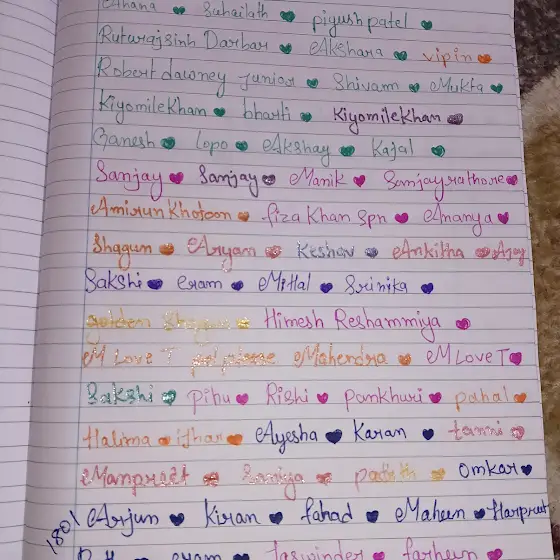 Suhailath ♥ piyush patel ♥
Ruturajsinh Darbar ♥ Akshara ♥ vipin ♥
Robert dawney junior ♥ Shivam ♥ Mukta ♥
Kiyomile Khan ♥ bharti ♥ Kiyomile Khan ♥
Ganesh ♥ Lopo ♥ Akshay ♥ Kajal ♥
Sanjay ♥ Sanjay ♥ Manik ♥ Sanjay rathore ♥
Amirun Khotoon ♥ fiza Khan Spn ♥ Ananya ♥
Shagun ♥ Aryam ♥ Keshav ♥ Ankitha ♥ Ajay
Sakshi ♥ eram ♥ Mittal ♥ Srinika ♥
golden ♥ Himesh Reshammiya ♥
M Love T Mahendra ♥ M Love T ♥
Sakshi ♥ Pihu ♥ Rishi ♥ Pankhuri ♥ pahal ♥
Halima ♥ ifhan ♥ Ayesha ♥ Karan ♥ tanni ♥
Manpreet ♥ Saniya ♥ ♥ Omkar ♥
1801 Arjun ♥ Kiran ♥ fahad ♥ Maheen ♥ Harpreet
eram ♥ Jaswinder ♥ farheen ♥